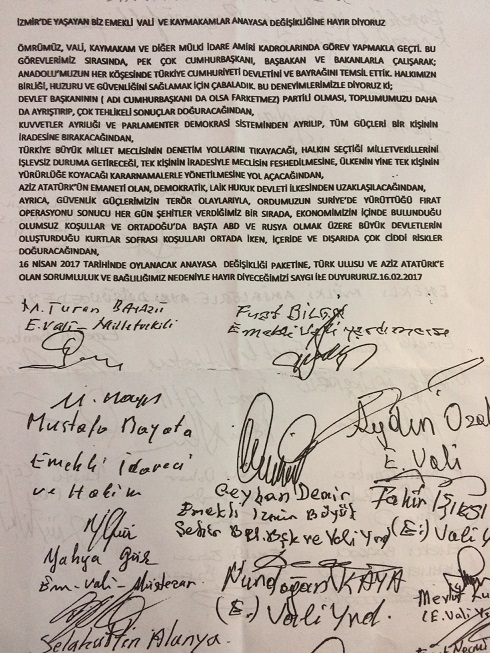 İZMİR'DE YAŞAYAN BİZ EMEKLİ VALİ VE KAYMAKAMLAR ANAYASA DEĞİŞİKLİĞİNE HAYIR DİYORUZ
ÖMRÜMÜZ, VALİ, KAYMAKAM VE DİĞER MÜLKİ İDARE AMİRİ KADROLARINDA GÖREV YAPMAKLA GEÇTİ. BU
GÖREVLERİMİZ SIRASINDA, PEK ÇOK CUMHURBAŞKANI, BAŞBAKAN VE BAKANLARLA ÇALIŞARAK;
ANADOLU'MUZUN HER KÖŞESİNDE TÜRKİYE CUMHURİYETİ DEVLETİNİ VE BAYRAĞINI TEMSİL ETTİK. HALKIMIZIN
BİRLİĞİ, HUZURU VE GÜVENLİĞİNİ SAĞLAMAK İÇİN ÇABALADIK. BU DENEYİMLERİMİZLE DİYORUZ Kİ;
DEVLET BAŞKANININ ( ADI CUMHURBAŞKANI DA OLSA FARKETMEZ) PARTİLİ OLMASI, TOPLUMUMUZU DAHA
DA AYRIŞTIRIP, ÇOK TEHLİKELİ SONUÇLAR DOĞURACAĞINDAN,
KUVVETLER AYRILIĞI VE PARLAMENTER DEMOKRASİ SİSTEMİNDEN AYRILIP, TÜM GÜÇLERİ BİR KİŞİNİN
İRADESİNE BIRAKACAĞINDAN,
TÜRKİYE BÜYÜK MİLLET MECLİSİNİN DENETİM YOLLARINI TIKAYACAĞI, HALKIN SEÇTİĞİ MİLLETVEKİLLERİNİ
İŞLEVSİZ DURUMA GETİRECEĞİ, TEK KİŞİNİN İRADESİYLE MECLİSİN FESHEDİLMESİNE, ÜLKENİN YİNE TEK KİŞİNİN
YÜRÜRLÜĞE KOYACAĞI KARARNAMALERLE YÖNETİLMESİNE YOL AÇACAĞINDAN,
AZİZ ATATÜRK'ÜN EMANETİ OLAN, DEMOKRATİK, LAİK HUKUK DEVLETİ İLKESİNDEN UZAKLAŞILACAĞINDAN,
AYRICA, GÜVENLİK GÜÇLERİMİZİN TERÖR OLAYLARIYLA, ORDUMUZUN SURİYE'DE YÜRÜTTÜĞÜ FIRAT
OPERASYONU SONUCU HER GÜN ŞEHİTLER VERDİĞİMİZ BİR SIRADA, EKONOMİMİZİN İÇİNDE BULUNDUĞU
OLUMSUZ KOŞULLAR VE ORTADOĞU'DA BAŞTA ABD VE RUSYA OLMAK ÜZERE BÜYÜK DEVLETLERİN
OLUŞTURDUĞU KURTLAR SOFRASI KOŞULLARI ORTADA İKEN, İÇERİDE VE DIŞARIDA ÇOK CİDDİ RİSKLER
DOĞURACAĞINDAN,
16 NİSAN 2017 TARİHİNDE OYLANACAK ANAYASA DEĞİŞİKLİĞİ PAKETİNE, TÜRK ULUSU VE AZİZ ATATÜRK'E
OLAN SORUMLULUK VE BAĞLILIĞIMIZ NEDENİYLE HAYIR DİYECEĞİMİZİ SAYGI İLE DUYURURUZ.16.02.2017
M. Turan
E. Vali - Milletvekili
Fırat BİLGE
Emekli Vali yardımcısı
Mustafa Bayata
Emekli İdareci
ve Hakim
Aydın Özal
E. Vali
Ceyhan Demir
Emekli İzmir Büyük
Şehir Bel. Bşk ve Vali Ynd
Tahir IŞIKSI
(E.) Vali y
Yahya Gür
Em-Vali-Müsteşar
Nundoğan KAYA
(E.) Vali Ynd.
Mevlut
(E. Vali
Selahattin Alanya.